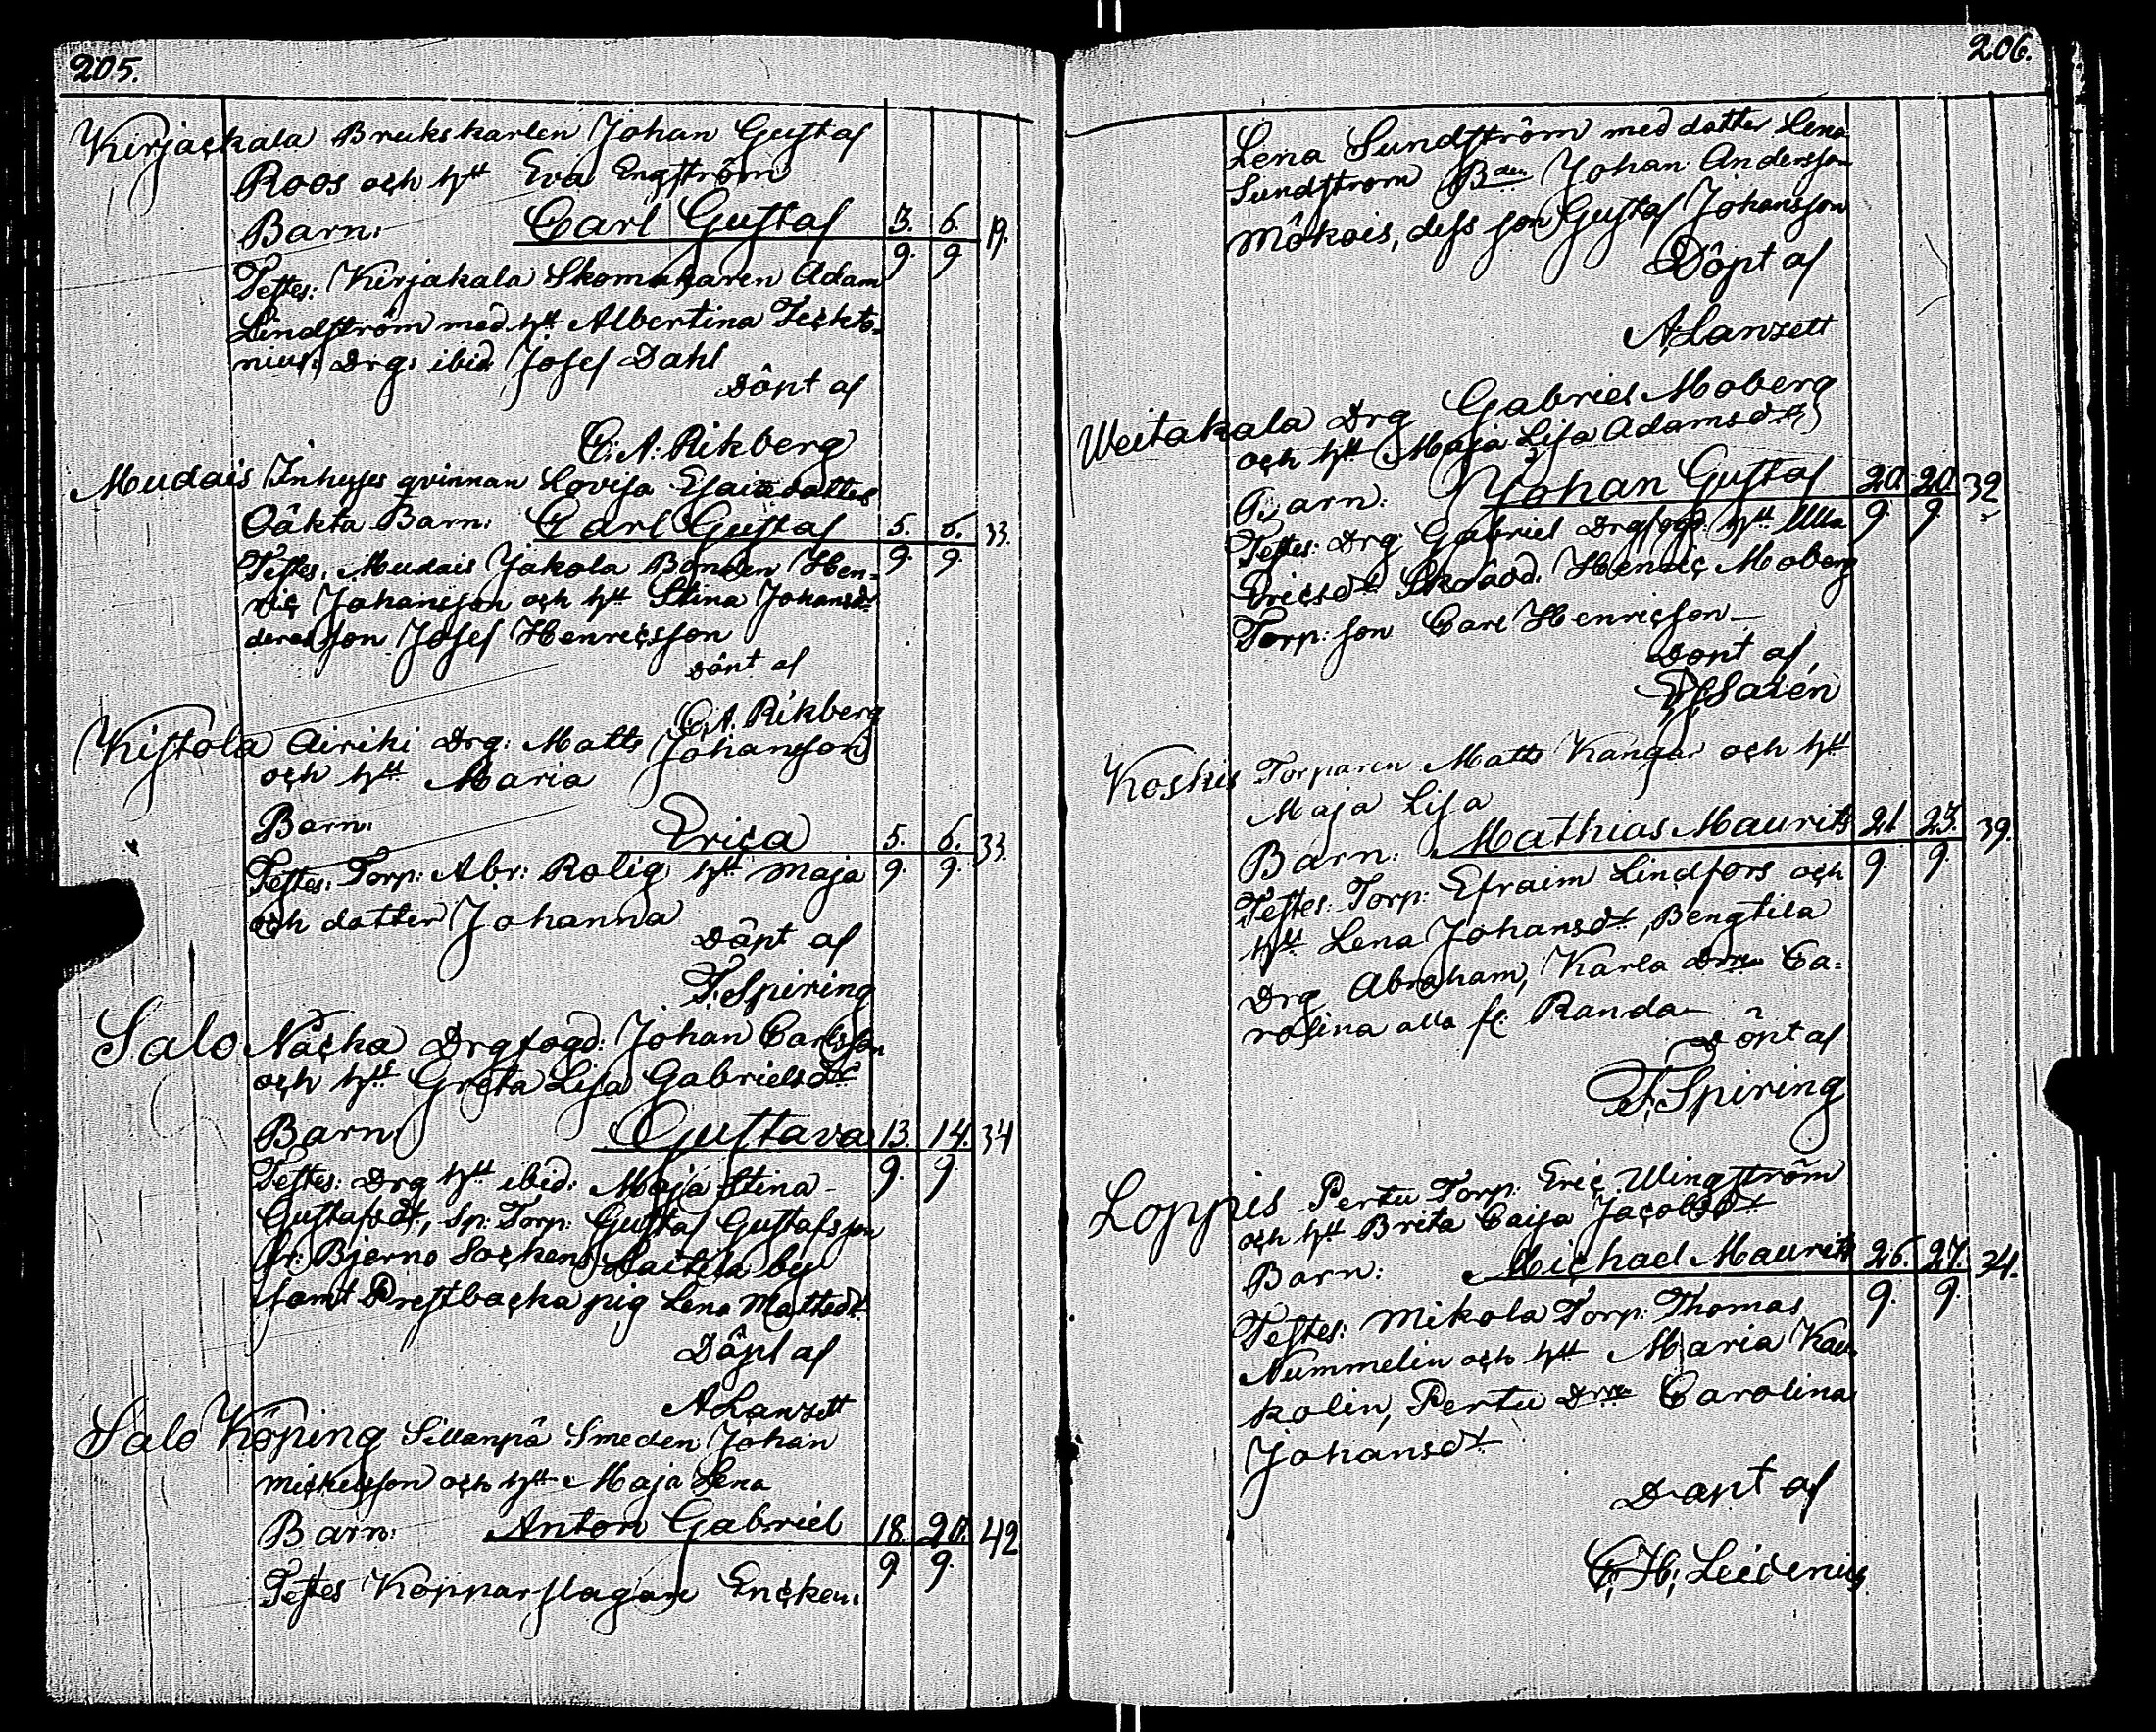 205.
Kirjackala Brukskarlen Johan Gustaf
Roos och hu Eva Engström
Barn: Carl Gustaf 3. 6. 19.
9. 9
Testes: Kirjakala Skomakaren Adam
Lindström med hu Albertina Teckto-
nius: Drg: ibid Josef Dahl
Döpt af
C. A. Rikberg
Mudais Inhyses qvinnan Lovisa Esaiadotter
Oäkta Barn: Carl Gustaf 5. 6. 33.
9. 9.
Testes: Mudais Jakola Bonden Hen-
ric Johansson och hu Stina Johansdr
deras son Josef Henricsson
Döpt af
C. A. Rikberg
Kistola Airiki Drg: Matts Johansson
och hu Maria
Barn: Erica 5. 6. 33.
9. 9.
Testes: Torp: Abr: Rolig hu Maja
och dotter Johanna
Döpt af
F. Spiring
Salo Näcka Drg fogd: Johan Carlsson
och hu Greta Lisa Gabrielsdr
Barn: Gustava 13. 14. 34
9. 9.
Testes: Drg hu ibid: Maja Stina
Gustafsdr, Sp: Torp: Gustaf Gustafsson
fr: Bjerno Sockens by
samt Prestbacka pig Lena Mattsdr
Döpt af
A Lanzett
Salo Köping Sillanpä Smeden Johan
Mickelsson och hu Maja Lena
Barn: Anton Gabriel 18. 20. 42
9. 9.
Testes Kopparslagare Encken.
206.
Lena Sundström med dotter Lena
Sundström Bden Johan Andersson
Mökois, dess son Gustaf Johansson
Döpt af
A Lanzett
Weitakala Drg Gabriel Moberg
och hu Maja Lisa Adamsdr
Barn: Johan Gustaf 20. 20. 32
9. 9.
Testes: Drg: Gabriel Drgfogd. hu Ulla
Ericsdr Henric Moberg
Torp: son Carl Henricson
Döpt af
Koskis Torparen Matts Kangar och hu
Maja Lisa
Barn: Mathias Maurits 21 23. 39.
9. 9.
Testes: Torp: Efraim Lindfors och
hu Lena Johansdr, Bengtila
Drg Abraham, Karla Drn Ca-
rolina alla fr. Randa
Döpt af
F. Spiring
Loppis Pertu Torp: Eric Wingström
och hu Brita Caisa Jacobsdr
Barn: Michael Maurits 26. 27. 34.
9. 9.
Testes: Mikola Torp: Thomas
Nummelin och hu Maria Kau-
kolin, Pertu Drn Carolina
Johansdr
Döpt af
C. H. Leidenius